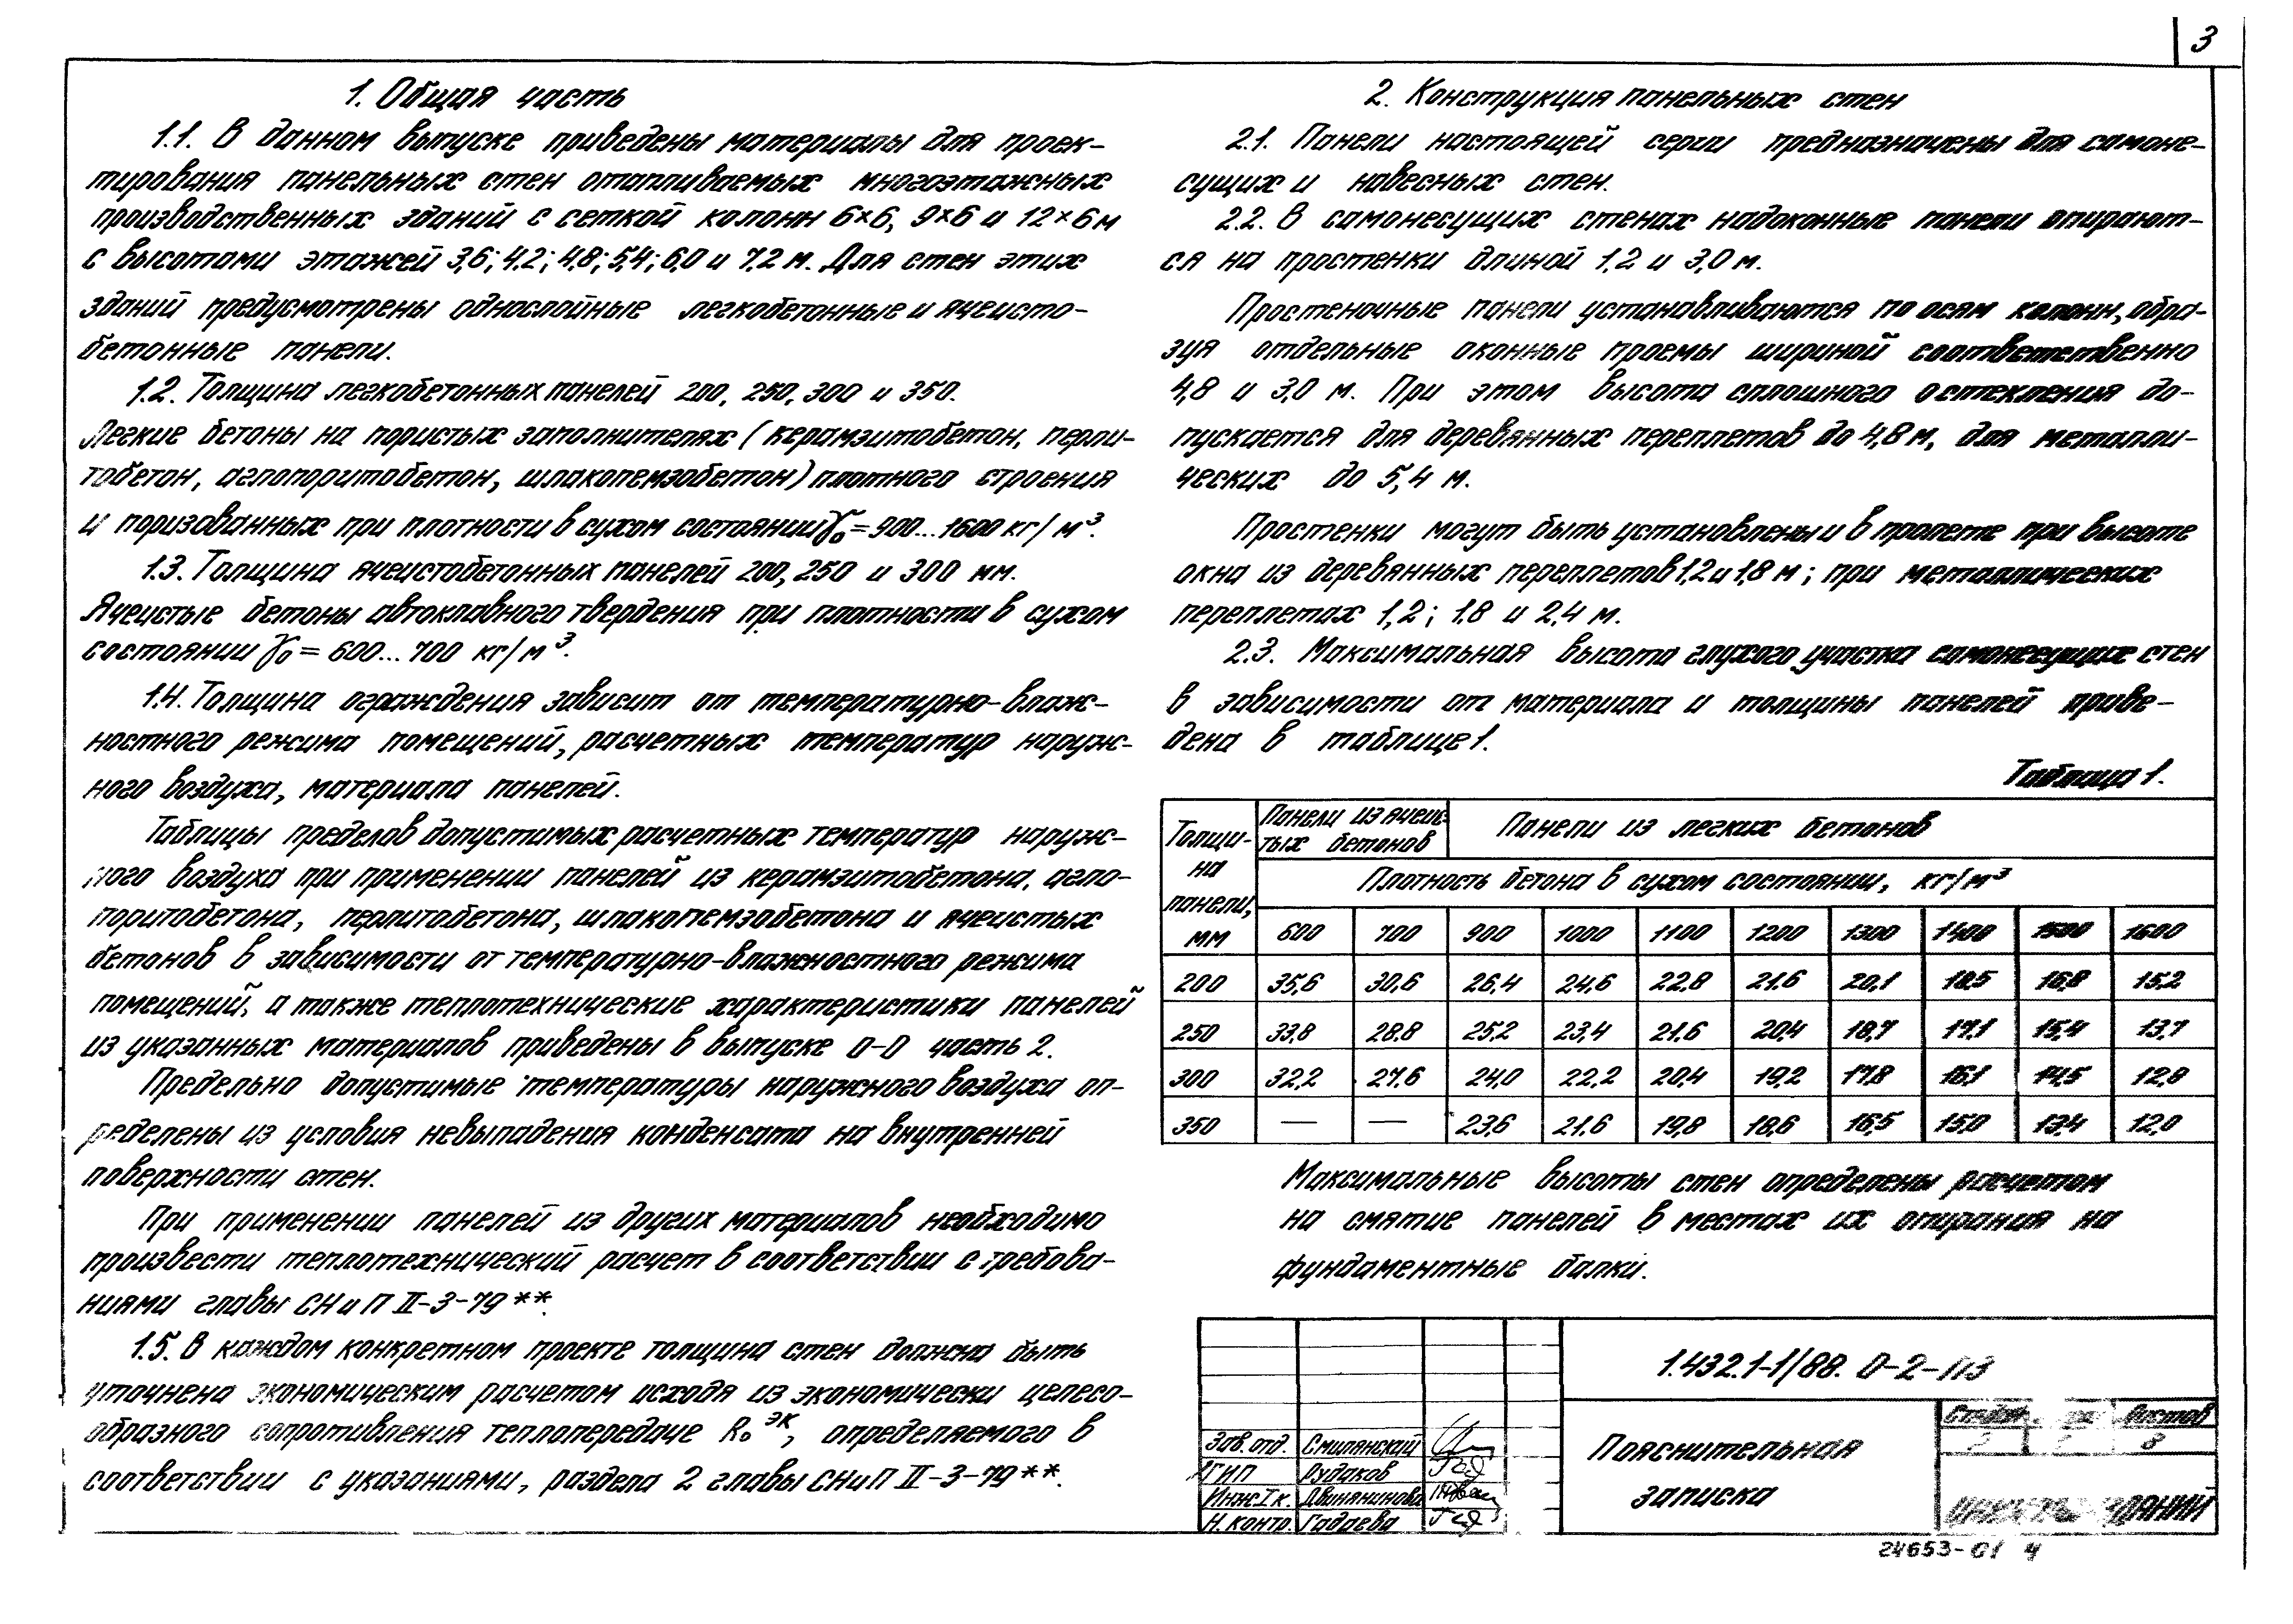 3
1. Общая часть
1.1. В данном выпуске приведены материалы для проек-
тирования панельных стен отапливаемых многоэтажных
производственных зданий с сеткой колонн 6×6, 9×6 и 12×6 м
с высотами этажей 3,6; 4.2; 4,8; 5,4; 6,0 и 7,2 м. Для стен этих
зданий предусмотрены однослойные легкобетонные и ячеисто-
бетонные панели.
1.2. Толщина легкобетонных панелей 200, 250, 300 и 350.
Легкие бетоны на пористых заполнителях (керамзитобетон, перли-
тобетон, аглопоритобетон, шлакопемзобетон) плотного строения
и поризованных при плотности в сухом состоянии γ₀ = 900...1600 кг/м³.
1.3. Толщина ячеистобетонных панелей 200, 250 и 300 мм.
Ячеистые бетоны автоклавного твердения при плотности в сухом
состоянии γ₀ = 600...700 кг/м³.
1.4. Толщина ограждения зависит от температурно-влаж-
ностного режима помещений, расчетных температур наруж-
ного воздуха, материала панелей.
Таблицы пределов допустимых расчетных температур наруж-
ного воздуха при применении панелей из керамзитобетона, агло-
поритобетона, перлитобетона, шлакопемзобетона и ячеистых
бетонов в зависимости от температурно-влажностного режима
помещений, а также теплотехнические характеристики панелей
из указанных материалов приведены в выпуске 0-0 часть 2.
Предельно допустимые температуры наружного воздуха оп-
ределены из условия невыпадения конденсата на внутренней
поверхности стен.
При применении панелей из других материалов необходимо
произвести теплотехнический расчет в соответствии с требова-
ниями главы СНиП II-3-79**.
1.5. В каждом конкретном проекте толщина стен должна быть
уточнена экономическим расчетом исходя из экономически целесо-
образного сопротивления теплопередаче R₀ᵊᴷ, определяемого в
соответствии с указаниями, раздела 2 главы СНиП II-3-79**.
2. Конструкция панельных стен
2.1. Панели настоящей серии предназначены для самоне-
сущих и навесных стен.
2.2. В самонесущих стенах надоконные панели опирают-
ся на простенки длиной 1,2 и 3,0 м.
Простеночные панели устанавливаются по осям колонн, обра-
зуя отдельные оконные проемы шириной соответственно
4,8 и 3,0 м. При этом высота сплошного остекления до-
пускается для деревянных переплетов до 4,8 м, для металли-
ческих до 5,4 м.
Простенки могут быть установлены и в пролете при высоте
окна из деревянных переплетов 1,2 и 1,8 м; при металлических
переплетах 1,2; 1.8 и 2,4 м.
2.3. Максимальная высота глухого участка самонесущих стен
в зависимости от материала и толщины панелей приве-
дена в таблице 1.
Таблица 1.
Толщи- на панели, мм | Панели из ячеис- тых бетонов | Панели из легких бетонов
Плотность бетона в сухом состоянии, кг/м³
600 700 900 1000 1100 1200 1300 1400 1500 1600
200 35,6 30,6 26,4 24,6 22,8 21.6 20,1 18,5 16,8 15,2
250 33,8 28.8 25,2 23,4 21.6 20,4 18,7 17,1 15,4 13,7
300 32,2 27,6 24,0 22,2 20,4 19,2 17,8 16,1 14,5 12,8
350 — — 23,6 21.6 19,8 18,6 16,5 15,0 13,4 12,0
Максимальные высоты стен определены расчетом
на смятие панелей в местах их опирания на
фундаментные балки.
1.432.1-1/88. 0-2-ПЗ
Зав. отд. Смилянский
ГИП Рудаков
Инж.I к. Двинянинова
Н. контр. Гадаева
Пояснительная
записка
Листов
8
ЗДАНИЙ
24653-01 4